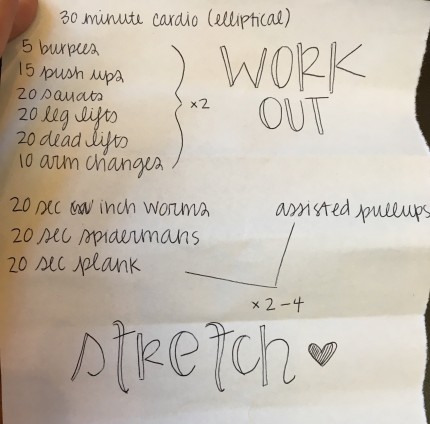 30 minute cardio (elliptical)
5 burpees
15 push ups
20 squats
20 leg lifts
20 dead lifts
10 arm changes
x2
WORK
OUT
20 sec inch worms
20 sec spidermans
20 sec plank
assisted pullups
x2-4
stretch